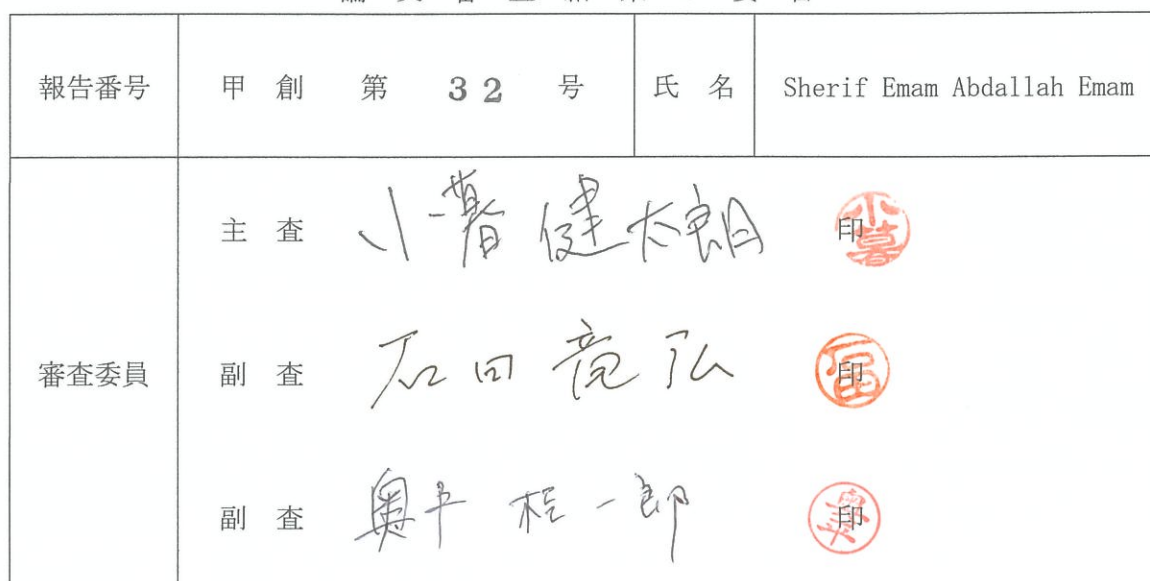 報告番号 甲 創 第 32 号 氏 名 Sherif Emam Abdallah Emam
主 査 小暮 健太朗 印
審査委員 副 査 石田 竜弘 印
副 査 奥平 桂一郎 印